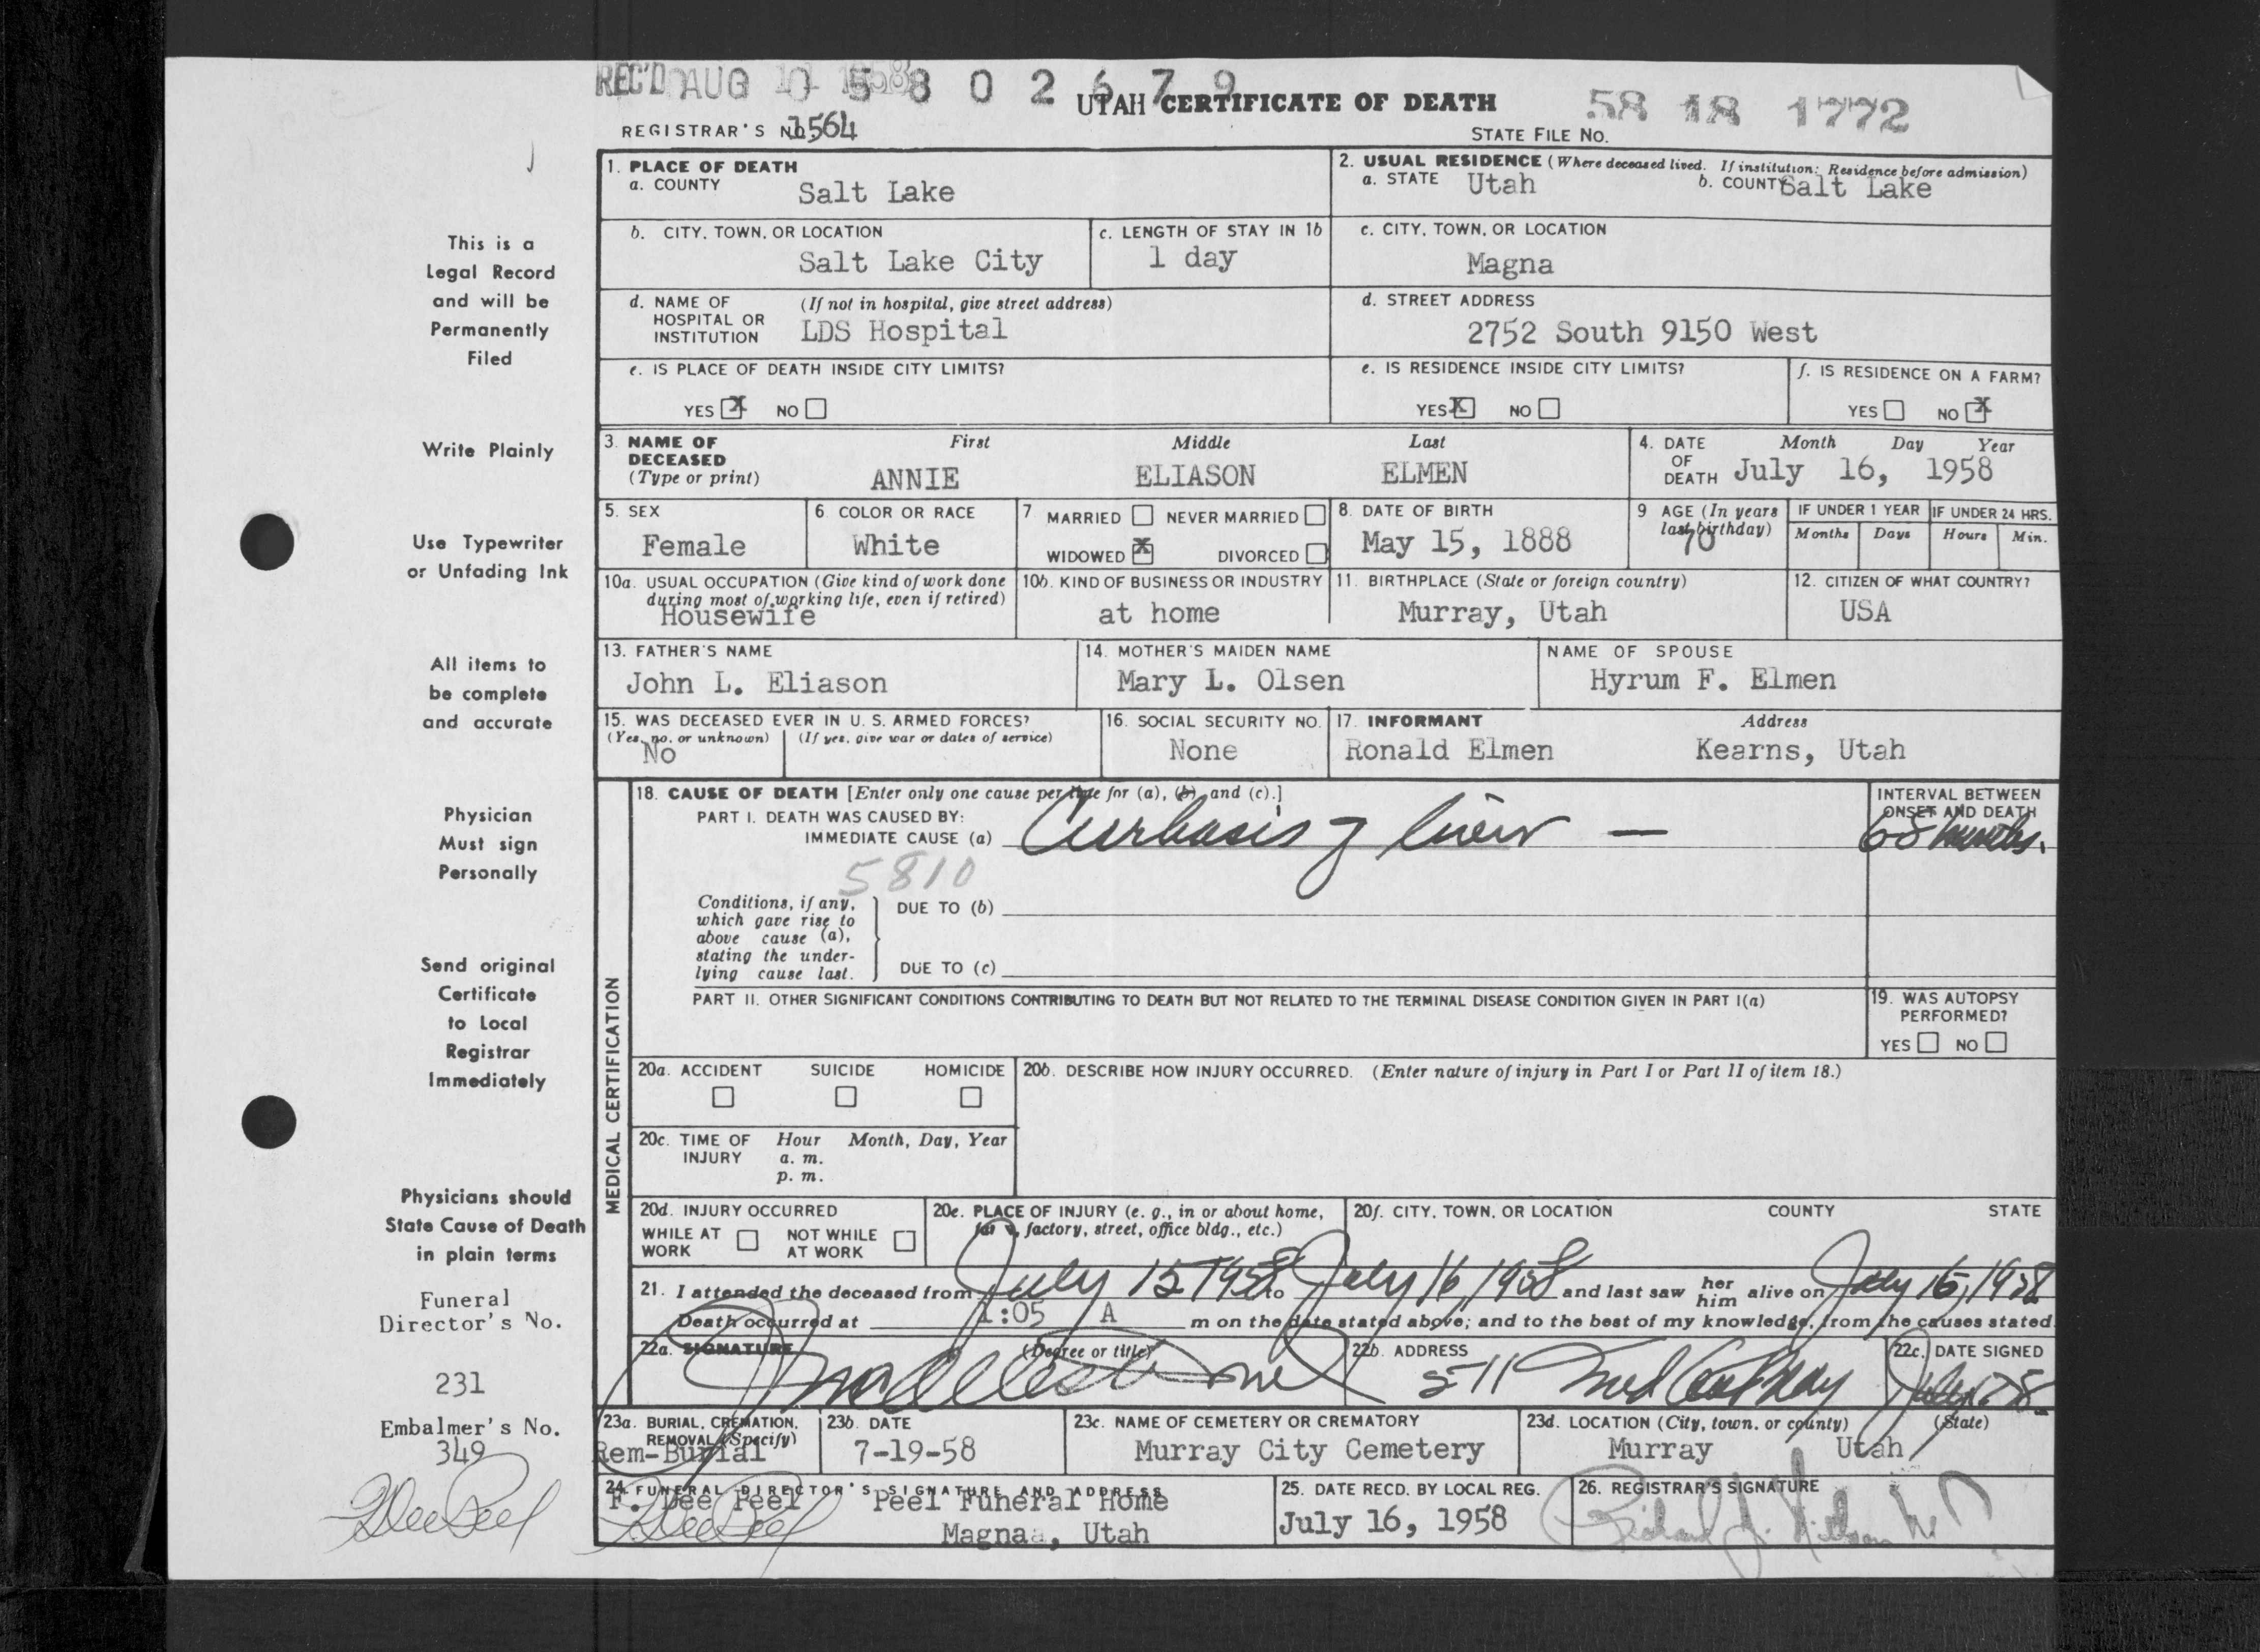 REC'D AUG 11 1958
0 5 8 0 2 6 7 9
UTAH CERTIFICATE OF DEATH
58 18 1772
REGISTRAR'S No. 1564
STATE FILE No.
1. PLACE OF DEATH
a. COUNTY Salt Lake
2. USUAL RESIDENCE (Where deceased lived. If institution: Residence before admission)
a. STATE Utah b. COUNTY Salt Lake
b. CITY, TOWN, OR LOCATION
Salt Lake City
c. LENGTH OF STAY IN 1b
1 day
c. CITY, TOWN, OR LOCATION
Magna
d. NAME OF HOSPITAL OR INSTITUTION (If not in hospital, give street address)
LDS Hospital
d. STREET ADDRESS
2752 South 9150 West
e. IS PLACE OF DEATH INSIDE CITY LIMITS?
YES X NO
e. IS RESIDENCE INSIDE CITY LIMITS?
YES X NO
f. IS RESIDENCE ON A FARM?
YES NO X
3. NAME OF DECEASED (Type or print)
First Middle Last
ANNIE ELIASON ELMEN
4. DATE OF DEATH Month Day Year
July 16, 1958
5. SEX
Female
6. COLOR OR RACE
White
7 MARRIED NEVER MARRIED
WIDOWED X DIVORCED
8. DATE OF BIRTH
May 15, 1888
9 AGE (In years last birthday)
70
IF UNDER 1 YEAR
Months Days
IF UNDER 24 HRS.
Hours Min.
10a. USUAL OCCUPATION (Give kind of work done during most of working life, even if retired)
Housewife
10b. KIND OF BUSINESS OR INDUSTRY
at home
11. BIRTHPLACE (State or foreign country)
Murray, Utah
12. CITIZEN OF WHAT COUNTRY?
USA
13. FATHER'S NAME
John L. Eliason
14. MOTHER'S MAIDEN NAME
Mary L. Olsen
NAME OF SPOUSE
Hyrum F. Elmen
15. WAS DECEASED EVER IN U. S. ARMED FORCES?
(Yes, no. or unknown) (If yes, give war or dates of service)
No
16. SOCIAL SECURITY NO.
None
17. INFORMANT Address
Ronald Elmen Kearns, Utah
MEDICAL CERTIFICATION
18. CAUSE OF DEATH [Enter only one cause per line for (a), (b), and (c).]
PART I. DEATH WAS CAUSED BY:
IMMEDIATE CAUSE (a) Cirrhosis of liver —
INTERVAL BETWEEN ONSET AND DEATH
months.
5810
Conditions, if any, which gave rise to above cause (a), stating the underlying cause last.
DUE TO (b)
DUE TO (c)
PART II. OTHER SIGNIFICANT CONDITIONS CONTRIBUTING TO DEATH BUT NOT RELATED TO THE TERMINAL DISEASE CONDITION GIVEN IN PART I(a)
19. WAS AUTOPSY PERFORMED?
YES NO
20a. ACCIDENT SUICIDE HOMICIDE
20b. DESCRIBE HOW INJURY OCCURRED. (Enter nature of injury in Part I or Part II of item 18.)
20c. TIME OF INJURY Hour Month, Day, Year
a. m.
p. m.
20d. INJURY OCCURRED
WHILE AT WORK NOT WHILE AT WORK
20e. PLACE OF INJURY (e. g., in or about home, farm, factory, street, office bldg., etc.)
20f. CITY, TOWN, OR LOCATION COUNTY STATE
21. I attended the deceased from July 15 1958 to July 16, 1958 and last saw her him alive on July 15, 1958
Death occurred at 1:05 A m on the date stated above; and to the best of my knowledge, from the causes stated.
22a. SIGNATURE (Degree or title)
22b. ADDRESS
511
22c. DATE SIGNED
23a. BURIAL, CREMATION, REMOVAL (Specify)
Rem-Burial
23b. DATE
7-19-58
23c. NAME OF CEMETERY OR CREMATORY
Murray City Cemetery
23d. LOCATION (City, town, or county) (State)
Murray Utah
24. FUNERAL DIRECTOR'S SIGNATURE AND ADDRESS
F. Dee Peel Peel Funeral Home
Magnaa, Utah
F Dee Peel
25. DATE RECD. BY LOCAL REG.
July 16, 1958
26. REGISTRAR'S SIGNATURE
This is a
Legal Record
and will be
Permanently
Filed
Write Plainly
Use Typewriter
or Unfading Ink
All items to
be complete
and accurate
Physician
Must sign
Personally
Send original
Certificate
to Local
Registrar
Immediately
Physicians should
State Cause of Death
in plain terms
Funeral
Director's No.
231
Embalmer's No.
349
F Dee Peel